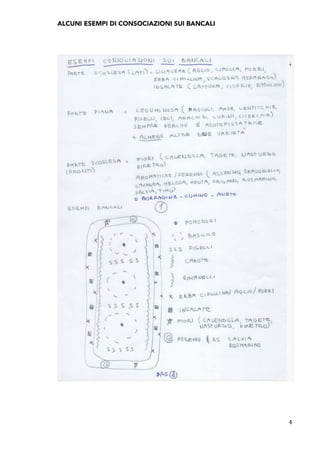 ALCUNI ESEMPI DI CONSOCIAZIONI SUI BANCALI
ESEMPI CONSOCIAZIONI SUI BANCALI
PARTE SCOSCESA (LATI) = LILIACEAE (AGLIO, CIPOLLA, PORRI,
ERBA CIPOLLINA, SCALOGNO, ASPARAGO)
INSALATE (LATTUGA, CICORIE,
PARTE PIANA = LEGUMINOSA (FAGIOLI, FAVE, LENTICCHIE,
PISELLI, CECI, ARACHIDI, LUPINI, CICERCHIE)
SEMPRE PERCHÉ È AZOTOFISSATRICE
+ ALMENO ALTRE DUE VARIETÀ
PARTE SCOSCESA = FIORI (CALENDULA, TAGETE, NASTURZIO
(FRONTI) PIRETRO)
AROMATICHE/PERENNI (ASSENZIO, DRAGONCELLO,
LAVANDA, MELISSA, MENTA, ORIGANO, ROSMARINO,
SALVIA, TIMO)
O BORRAGINE - CUMINO - ANETO
ESEMPI BANCALI
1
POMODORI
BASILICO
SSS PISELLI
CAROTE
RAVANELLI
X ERBA CIPOLLINA/AGLIO/PORRI
INSALATE
FIORI (CALENDULA, TAGETE,
NASTURZIO, PIRETRO)
PERENNI ES SALVIA
ROSMARINO
PAG 1
4